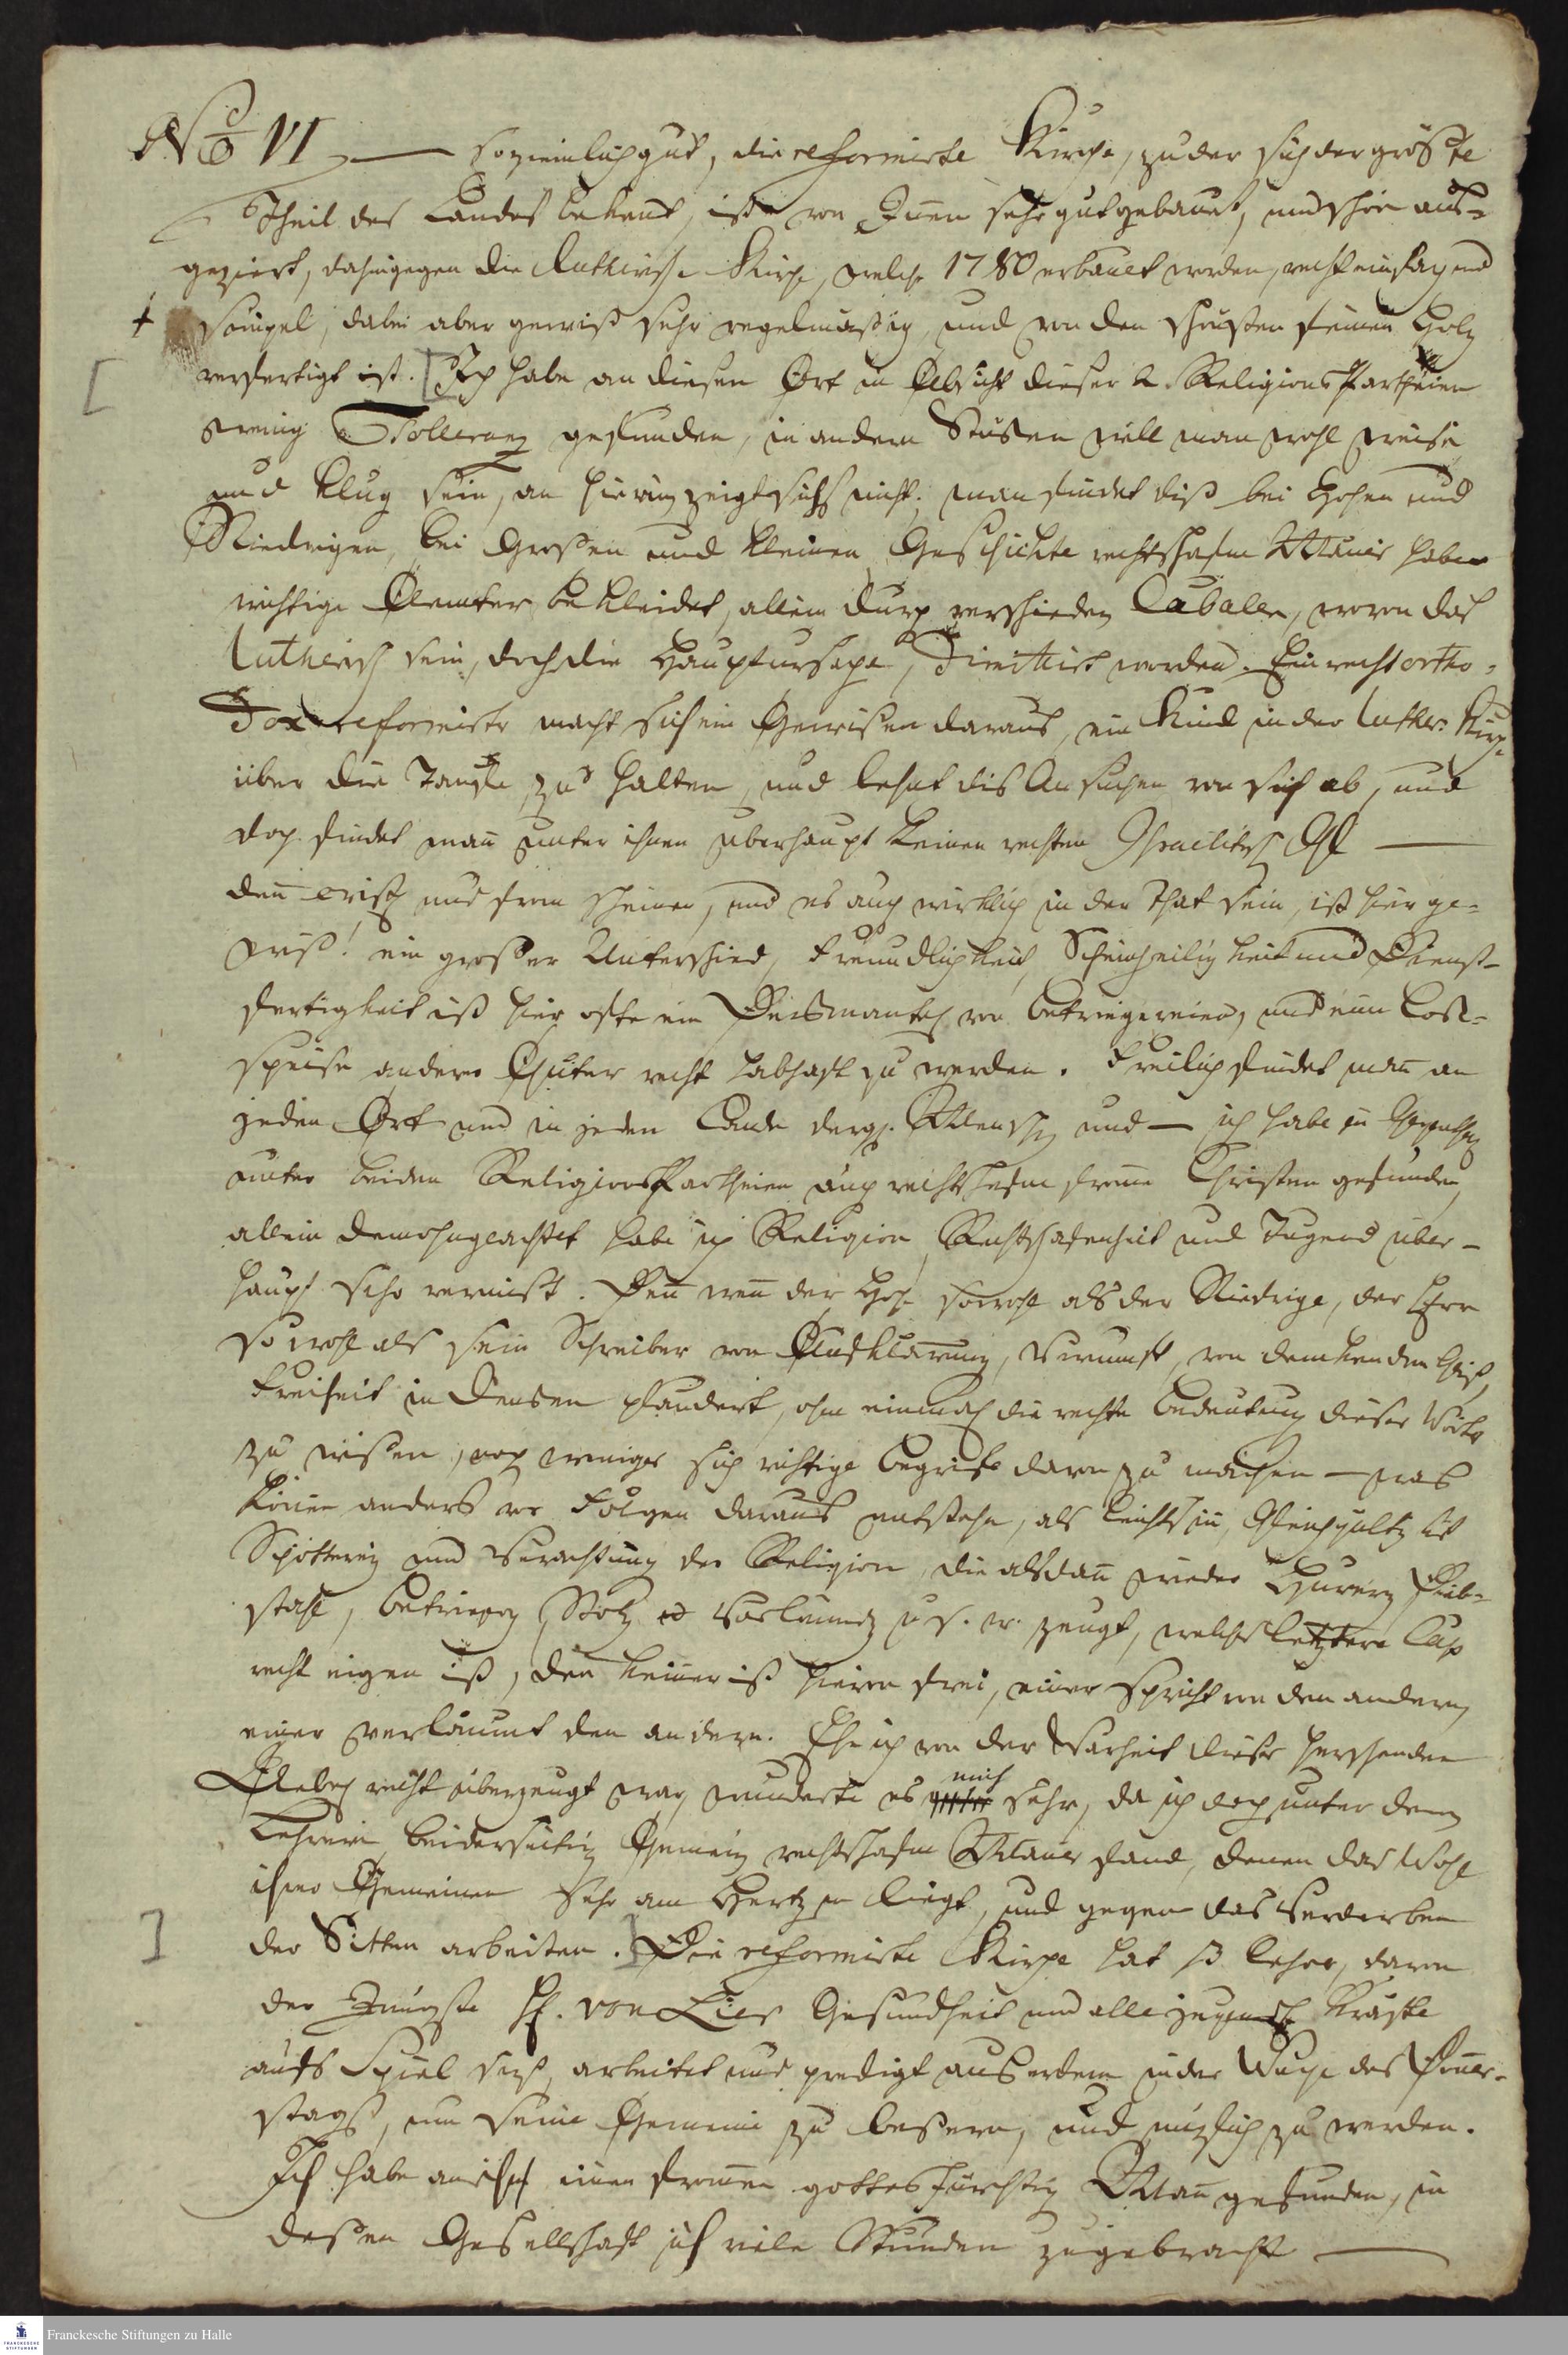 No VI — so zieimlich gut, die reformirte Kirche, zu der sich der größte
Theil des Landes bekent, ist von Innen sehr gut gebauet, und schön aus-
geziert, dahingegen die lutherische Kirche, welche 1780 erbauet worden, recht einfach und
simpel, dabei aber gewiß sehr regelmäßig, und von den schönsten feinen Holz
verfertigt ist. [Ich habe an diesen Ort in Absicht dieser 2. Religions Partheien
wenig Tollerantz gefunden, in andern Stüken will man wohl weise
und klug sein, an hierin zeigt sichs nicht; man findet diß bei Hohen und
Niedrigen, bei Großen und Kleinen. Geschickte rechtschafne Mäner haben
wichtige Aemter bekleidet, allein durch verschieden Caballe, wovon das
Lutherisch sein, doch die Hauptursache, Dimittirt worden. Ein recht ortho-
dox reformirter macht sich ein Gewissen daraus, ein Kind in der luther. Kirche
über die Taufe zu halten, und lehnt dis Ansuchen von sich ab, und
doch findet man unter ihnen überhaupt keinen rechten Israelitisch —
den nur from scheinen, und es auch wirklich in der That sein, ist hier ge-
wiß! ein großer Unterschied, Freundlichkeit, Scheinheiligkeit und Dienst-
fertigkeit ist hier ofte ein Dekmantel von betriegereien, und eine Lok-
speise anderer Güter recht habhaft zu werden. Freilich findet man an
jeden Ort und in jeden Lande dergl. Menschen und — ich habe im Gegentheil
unter beiden Religions Partheien auch rechtschafne frome Christen gefunden,
allein demohngeachtet habe ich Religion, Rechtschafenheit und Tugend über-
haupt sehr vermißt. Den wen der Hohe sowohl als der Niedrige, der Herr
sowohl als sein Schreiber von Aufklärung, Vernunft, von denkenden Geist,
Freiheit in Denken plaudert, ohne einmahl die rechte bedeutung dieser Worte
zu wißen, noch weniger sich richtige begriffe davon zu machen — was
könen anders vor Folgen daraus entstehen, als Leichtsin, Gleichgültigkeit
Spötterey und Verachtung der Religion, die alsdan wieder Hurerey, Dieb-
stahl, betriegerey, Stolz, Verläumdg u. s. w. zeugt, welches letztere Cap
recht eigen ist, den keiner ist hievon frei, einer spricht von den andern,
einer verläumt den andern. Ehe ich von der Warheit dieses herschenden
Uebels recht überzeugt war, wunderte es mich sehr, da ich doch unter denen
Lehrern beiderseitig Gemein rechtschafne Mäner fand, denen das Wohl
ihrer Gemeinen sehr am Hertzen liegt, und gegen das Verderben
der Sitten arbeiten.] Die reformirte Kirche hat 3 Lehrer, davon
der Jüngste H. von Lier Gesundheit und alle jugendl. Kräfte
aufs Spiel setzt, arbeitet und predigt auserdem in der Woche des Doner-
stags, um seine Gemeine zu beßern, und nüzlich zu werden.
Ich habe an ihm einen fromen gottesfürchtig Man gefunden, in
deßen Gesellschaft ich viele Stunden zugebracht —
Franckesche Stiftungen zu Halle